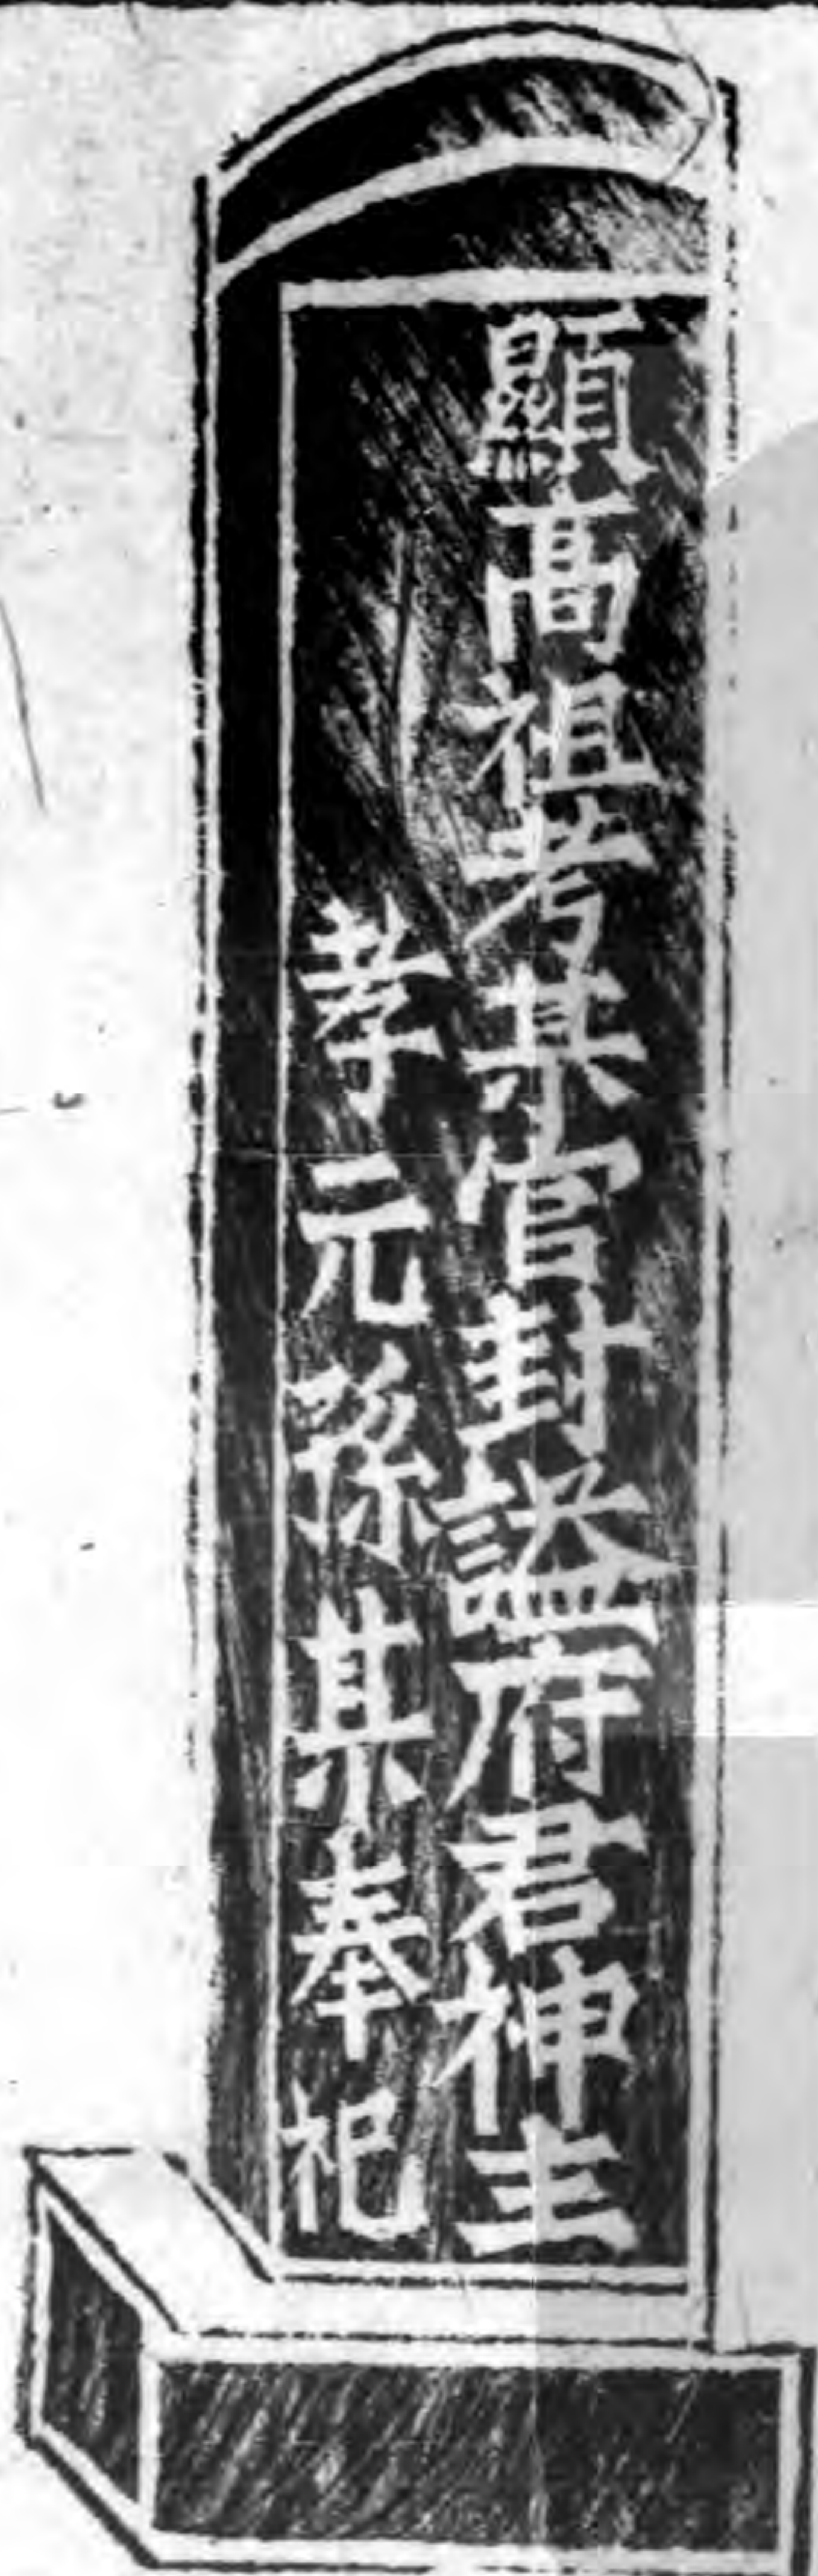 顯高祖考某官封謚府君神主
孝元孫某奉祀